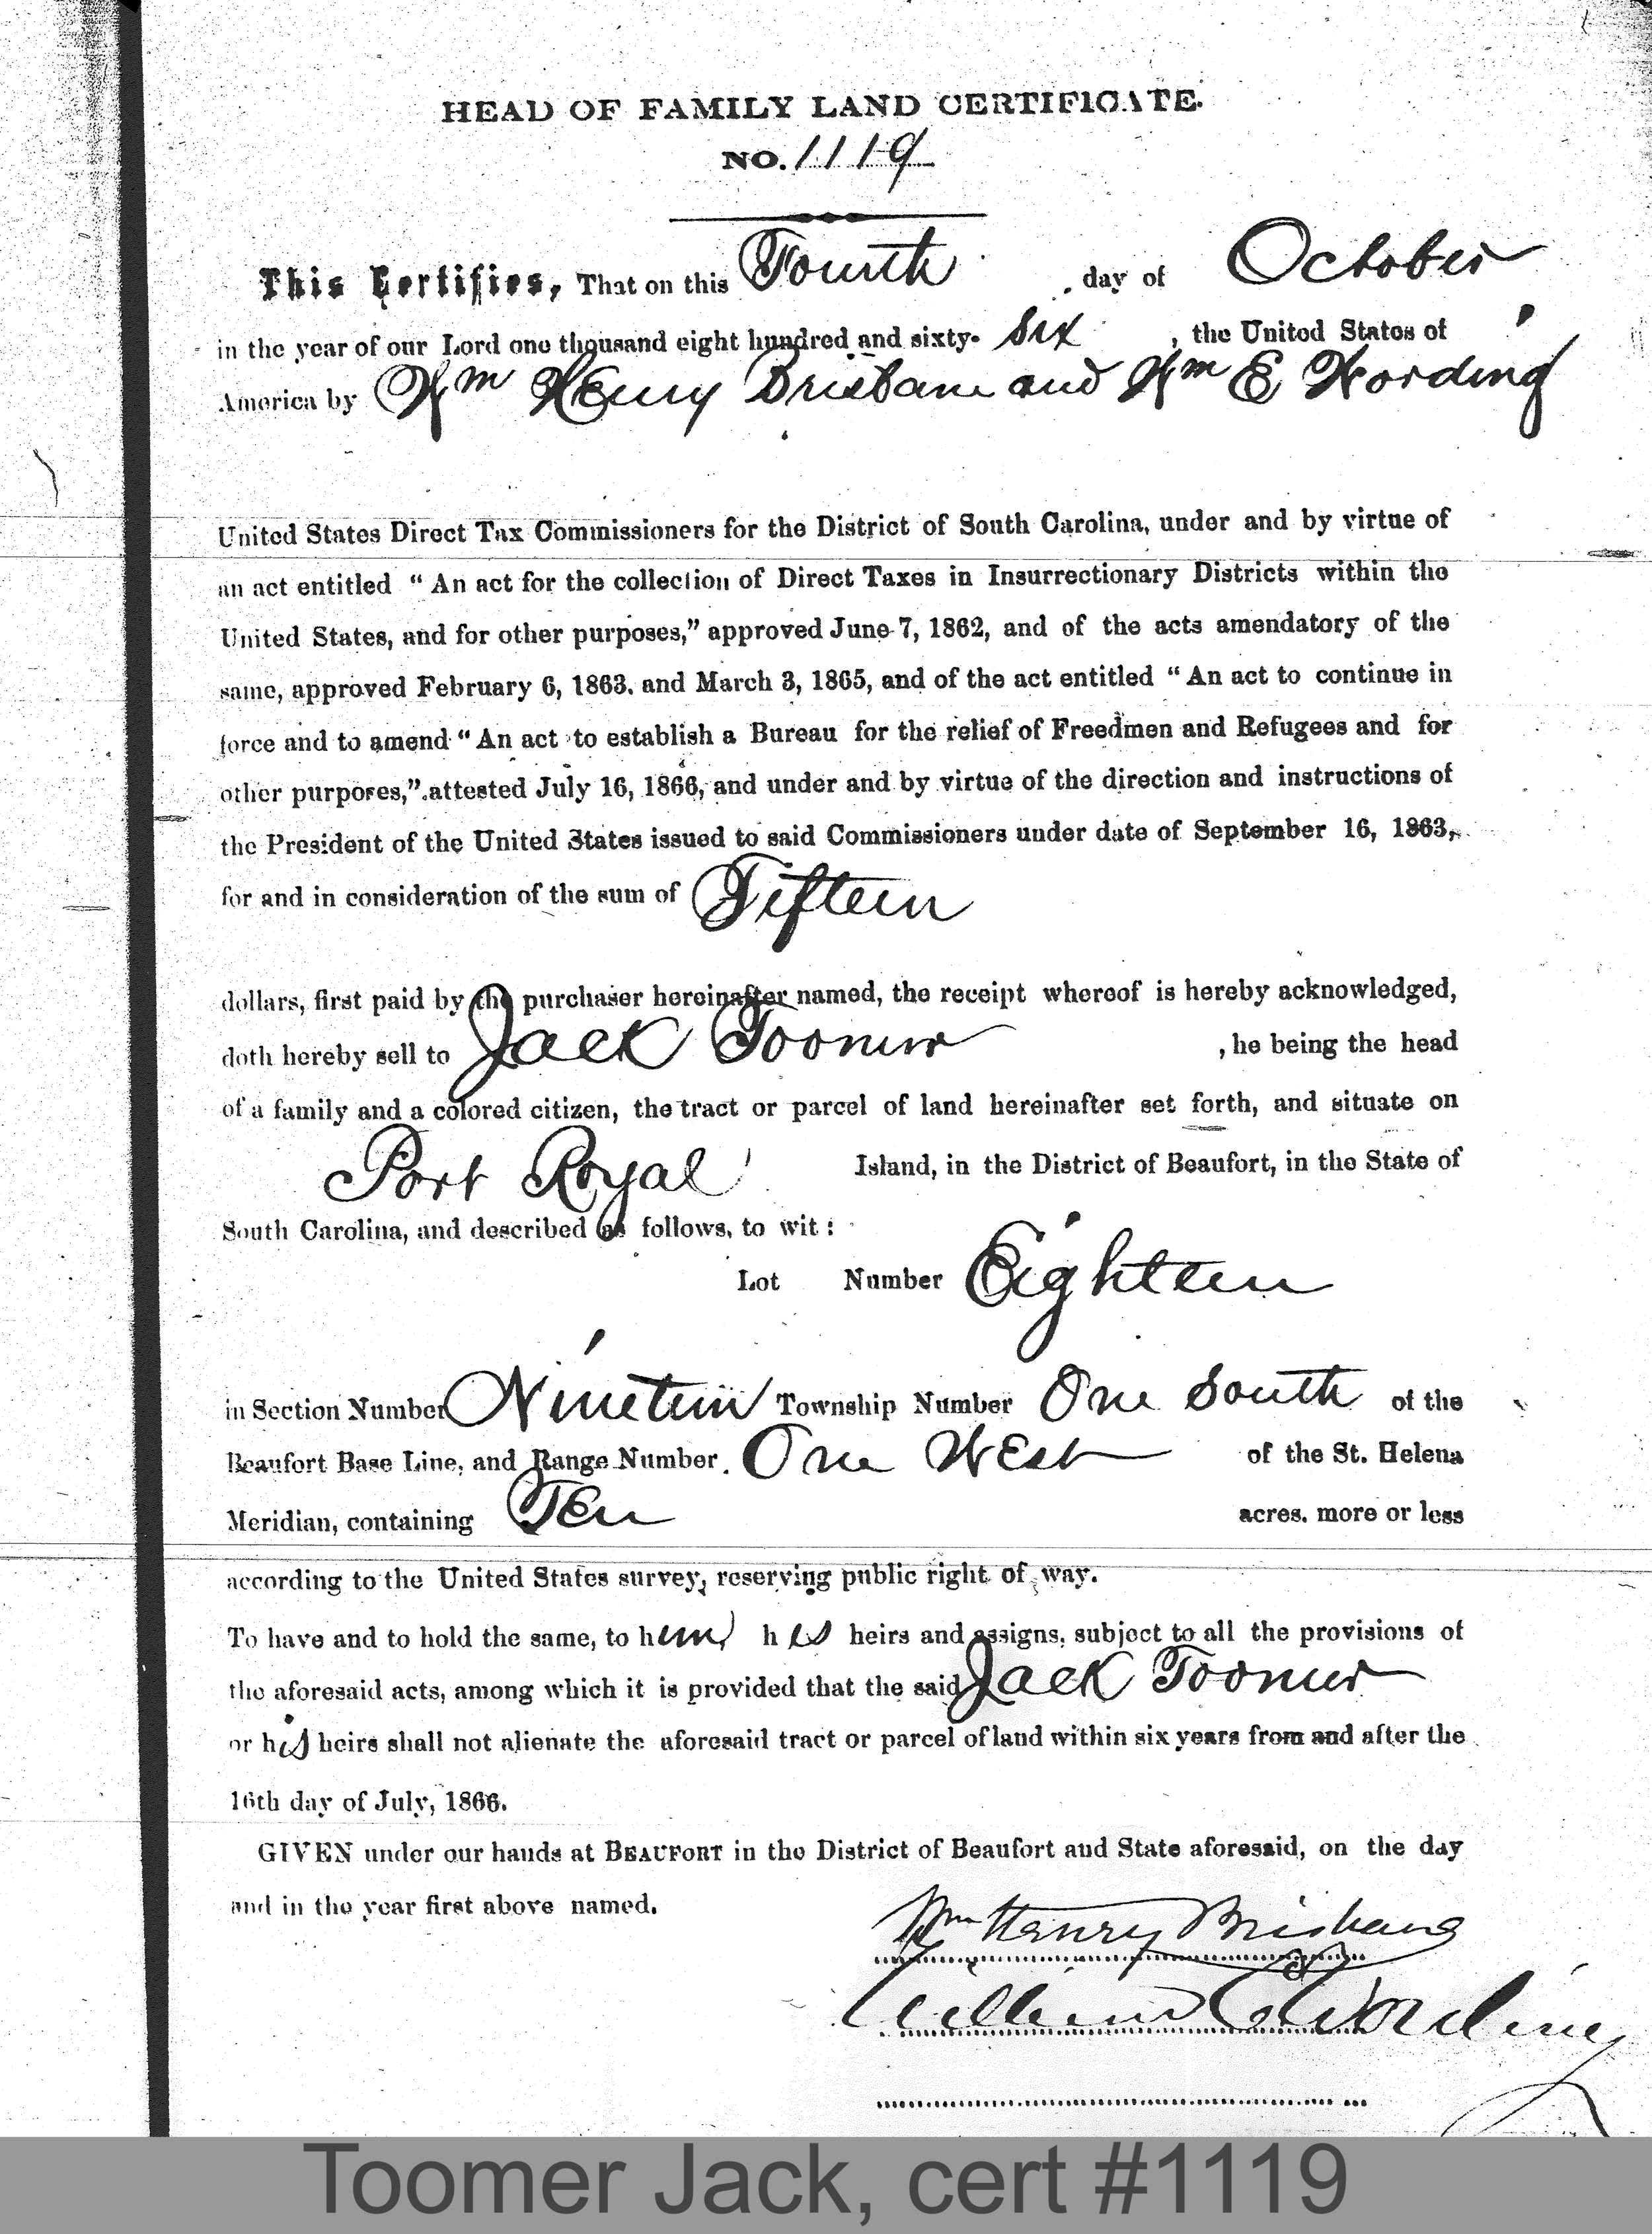 HEAD OF FAMILY LAND CERTIFICATE.
NO. 1119
This Certifies, That on this Fourth day of October
in the year of our Lord one thousand eight hundred and sixty-six, the United States of
America by Wm Henry Brisbane and Wm E Wording
United States Direct Tax Commissioners for the District of South Carolina, under and by virtue of
an act entitled "An act for the collection of Direct Taxes in Insurrectionary Districts within the
United States, and for other purposes," approved June 7, 1862, and of the acts amendatory of the
same, approved February 6, 1863. and March 3, 1865, and of the act entitled "An act to continue in
force and to amend "An act to establish a Bureau for the relief of Freedmen and Refugees and for
other purposes," attested July 16, 1866, and under and by virtue of the direction and instructions of
the President of the United States issued to said Commissioners under date of September 16, 1863,
for and in consideration of the sum of Fifteen
dollars, first paid by the purchaser hereinafter named, the receipt whereof is hereby acknowledged,
doth hereby sell to Jack Toomer, he being the head
of a family and a colored citizen, the tract or parcel of land hereinafter set forth, and situate on
Port Royal Island, in the District of Beaufort, in the State of
South Carolina, and described as follows, to wit:
Lot Number Eighteen
in Section Number Nineteen Township Number One South of the
Beaufort Base Line, and Range Number One West of the St. Helena
Meridian, containing Ten acres. more or less
according to the United States survey, reserving public right of way.
To have and to hold the same, to him, his heirs and assigns, subject to all the provisions of
the aforesaid acts, among which it is provided that the said Jack Toomer
or his heirs shall not alienate the aforesaid tract or parcel of land within six years from and after the
16th day of July, 1866.
GIVEN under our hands at BEAUFORT in the District of Beaufort and State aforesaid, on the day
and in the year first above named.
Wm Henry Brisbane
William E Wording
Toomer Jack, cert #1119